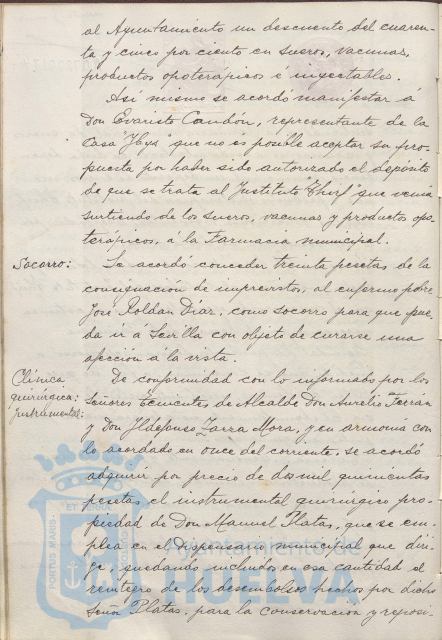 al Ayuntamiento un descuento del cuaren-
ta y cinco por ciento en sueros, vacunas,
productos opoterápicos e inyectables.
Así mismo se acordó manifestar á
Don Evaristo Candón, representante de la
Casa "Ibys" que no és posible aceptar su pro-
puesta por haber sido autorizado el depósito
de que se trata al Instituto "Thirf" que venia
surtiendo de los sueros, vacunas y productos opo-
terápicos, á la Farmacia municipal.
Socorro: Se acordó conceder treinta pesetas de la
consignacion de imprevistos, al enfermo pobre
José Roldan Diaz, como socorro para que pue-
da ir á Sevilla con objeto de curarse una
afeccion á la vista.
Clínica De conformidad con lo informado por los
quirúrgica: Señores Tenientes de Alcalde Don Aurelio Terrán
Instrumental: y Don Ildefonso Zarra Mora, y en armonia con
lo acordado en once del corriente, se acordó
adquirir por precio de dos mil quinientas
pesetas el instrumental quirúrgico pro-
piedad de Don Manuel Platas, que se em-
plea en el dispensario municipal que diri-
ge, quedando incluidos en esa cantidad el
reintegro de los desembolsos hechos por dicho
Señor Platas, para la conservación y reposi-
PORTUS MARIS
ET TERRÆ
CUSTODIA
Ayuntamiento de
HUELVA